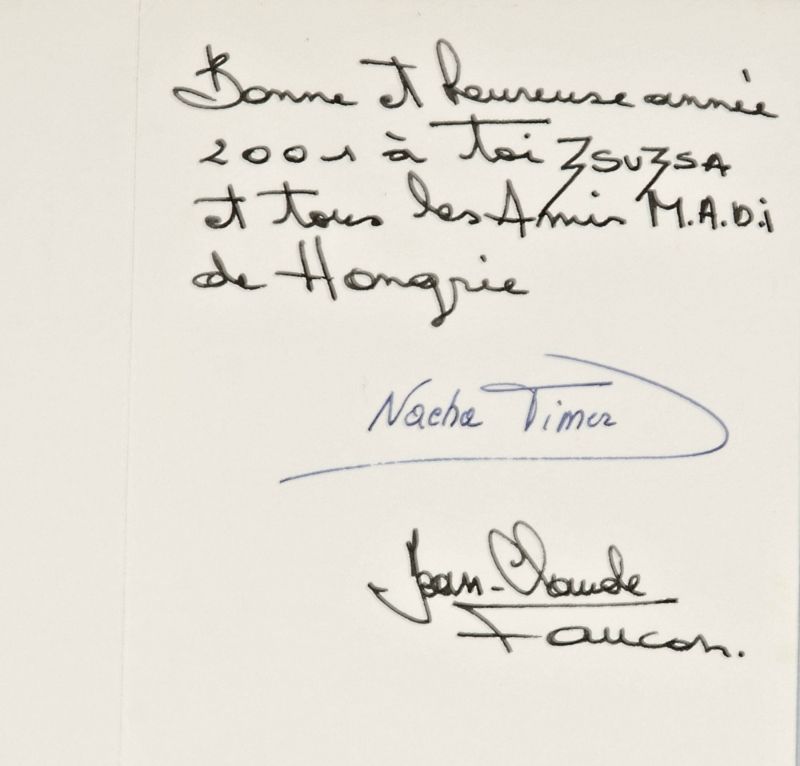 Bonne et heureuse année
2001 à toi ZSUZSA
et tous les Amis M.A.D.i
de Hongrie
Nacha Timer
Jean-Claude
Faucon.